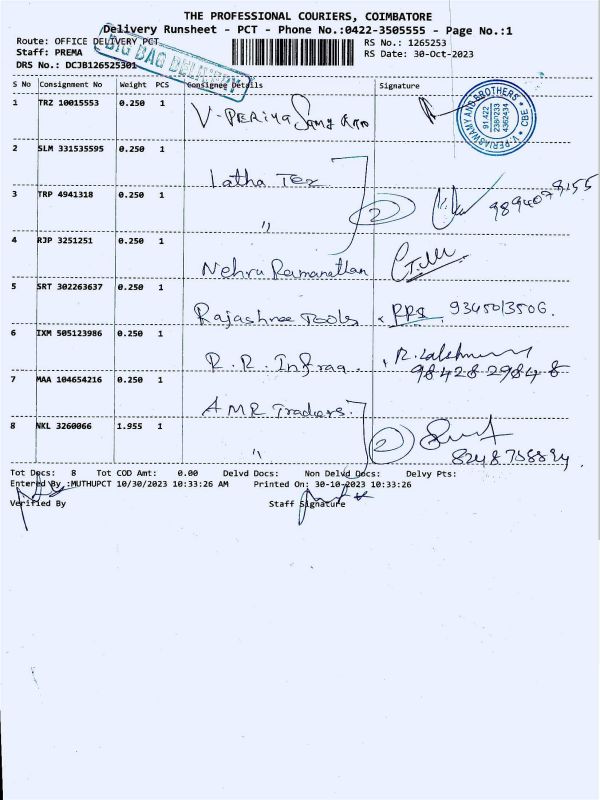 THE PROFESSIONAL COURIERS, COIMBATORE
Delivery Runsheet - PCT - Phone No.:0422-3505555 - Page No.:1
Route: OFFICE DELIVERY PCT
RS No.: 1265253
Staff: PREMA
RS Date: 30-Oct-2023
DRS No.: DCJB126525301
BIG BAG DELIVERY
S No Consignment No Weight PCS Consignee Details Signature
1 TRZ 10015553 0.250 1 V-PERIYA Samy
V-PERIASWAMY AND BROTHERS * CBE *
91 422
2380233
4362434
2 SLM 331535595 0.250 1 Latha Tex
3 TRP 4941318 0.250 1 " 2
4 RJP 3251251 0.250 1 Nehru Ramanathan
5 SRT 302263637 0.250 1 Rajashree Tools PPS 9345013506.
6 IXM 505123986 0.250 1 R.R. Infraa. R. Lakshm 98428 29848
7 MAA 104654216 0.250 1 AMR Traders.
8 NKL 3260066 1.955 1 " 2
Tot Docs: 8 Tot COD Amt: 0.00 Delvd Docs: Non Delvd Docs: Delvy Pts:
Entered By :MUTHUPCT 10/30/2023 10:33:26 AM Printed On: 30-10-2023 10:33:26
Verified By Staff Signature